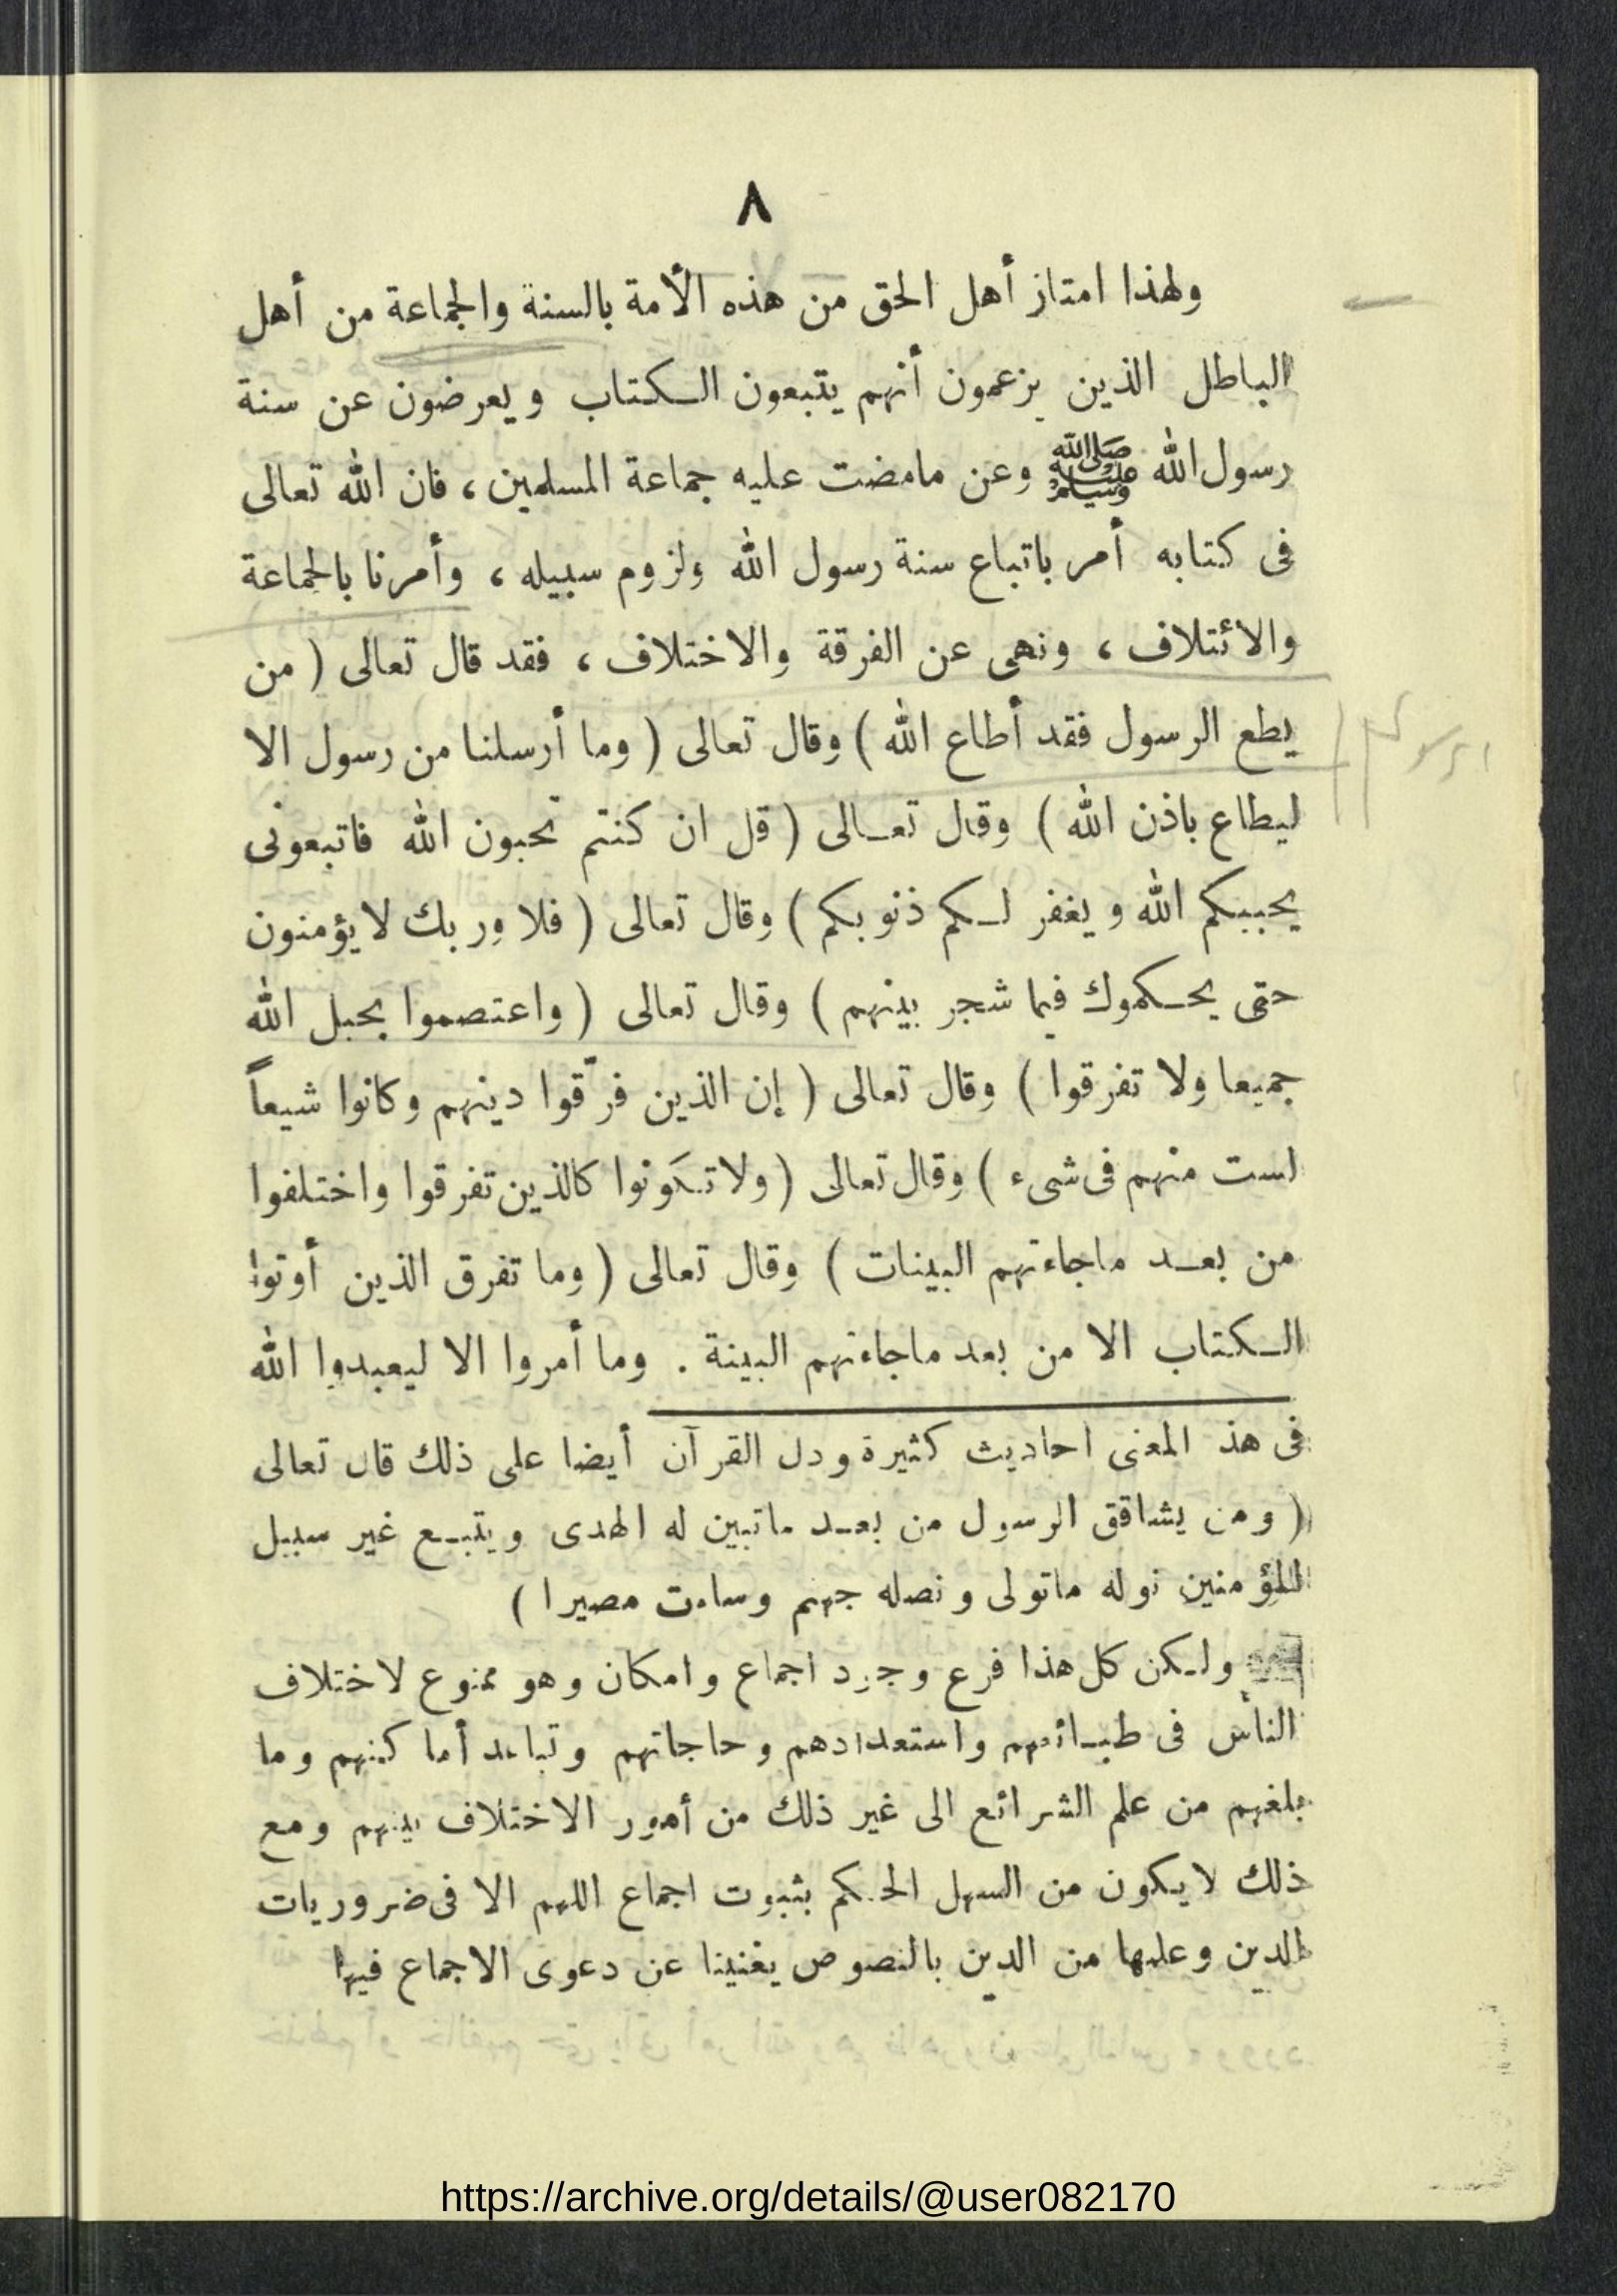 ٨
ولهذا امتاز أهل الحق من هذه الأمة بالسنة والجماعة من أهل
الباطل الذين يزعمون أنهم يتبعون الكتاب ويعرضون عن سنة
رسول الله ﷺ وعن مامضت عليه جماعة المسلمين، فان الله تعالى
فى كتابه أمر باتباع سنة رسول الله ولزوم سبيله، وأمرنا بالجماعة
والائتلاف، ونهى عن الفرقة والاختلاف، فقد قال تعالى ( من
يطع الرسول فقد أطاع الله ) وقال تعالى ( وما أرسلنا من رسول الا
ليطاع باذن الله ) وقال تعالى ( قل ان كنتم تحبون الله فاتبعونى
يحببكم الله ويغفر لكم ذنوبكم ) وقال تعالى ( فلا وربك لا يؤمنون
حتى يحكموك فيما شجر بينهم ) وقال تعالى ( واعتصموا بحبل الله
جميعا ولا تفرقوا ) وقال تعالى ( إن الذين فرّقوا دينهم وكانوا شيعاً
لست منهم فى شىء ) وقال تعالى ( ولا تكَونوا كالذين تفرقوا واختلفوا
من بعد ماجاءتهم البينات ) وقال تعالى ( وما تفرق الذين أوتوا
الكتاب الا من بعد ماجاءتهم البينة . وما أمروا الا ليعبدوا الله
فى هذ المعنى احاديث كثيرة ودل القرآن أيضا على ذلك قال تعالى
( ومن يشاقق الرسول من بعد ماتبين له الهدى ويتبع غير سبيل
المؤمنين نوله ماتولى ونصله جهنم وساءت مصيرا )
ولكن كل هذا فرع وجود اجماع وامكان وهو ممنوع لاختلاف
الناس فى طبائعهم واستعدادهم وحاجاتهم وتباعد أماكنهم وما
بلغهم من علم الشرائع الى غير ذلك من أمور الاختلاف بينهم ومع
ذلك لا يكون من السهل الحكم بثبوت اجماع اللهم الا فى ضروريات
الدين وعلمها من الدين بالنصوص يغنينا عن دعوى الاجماع فيها
https://archive.org/details/@user082170